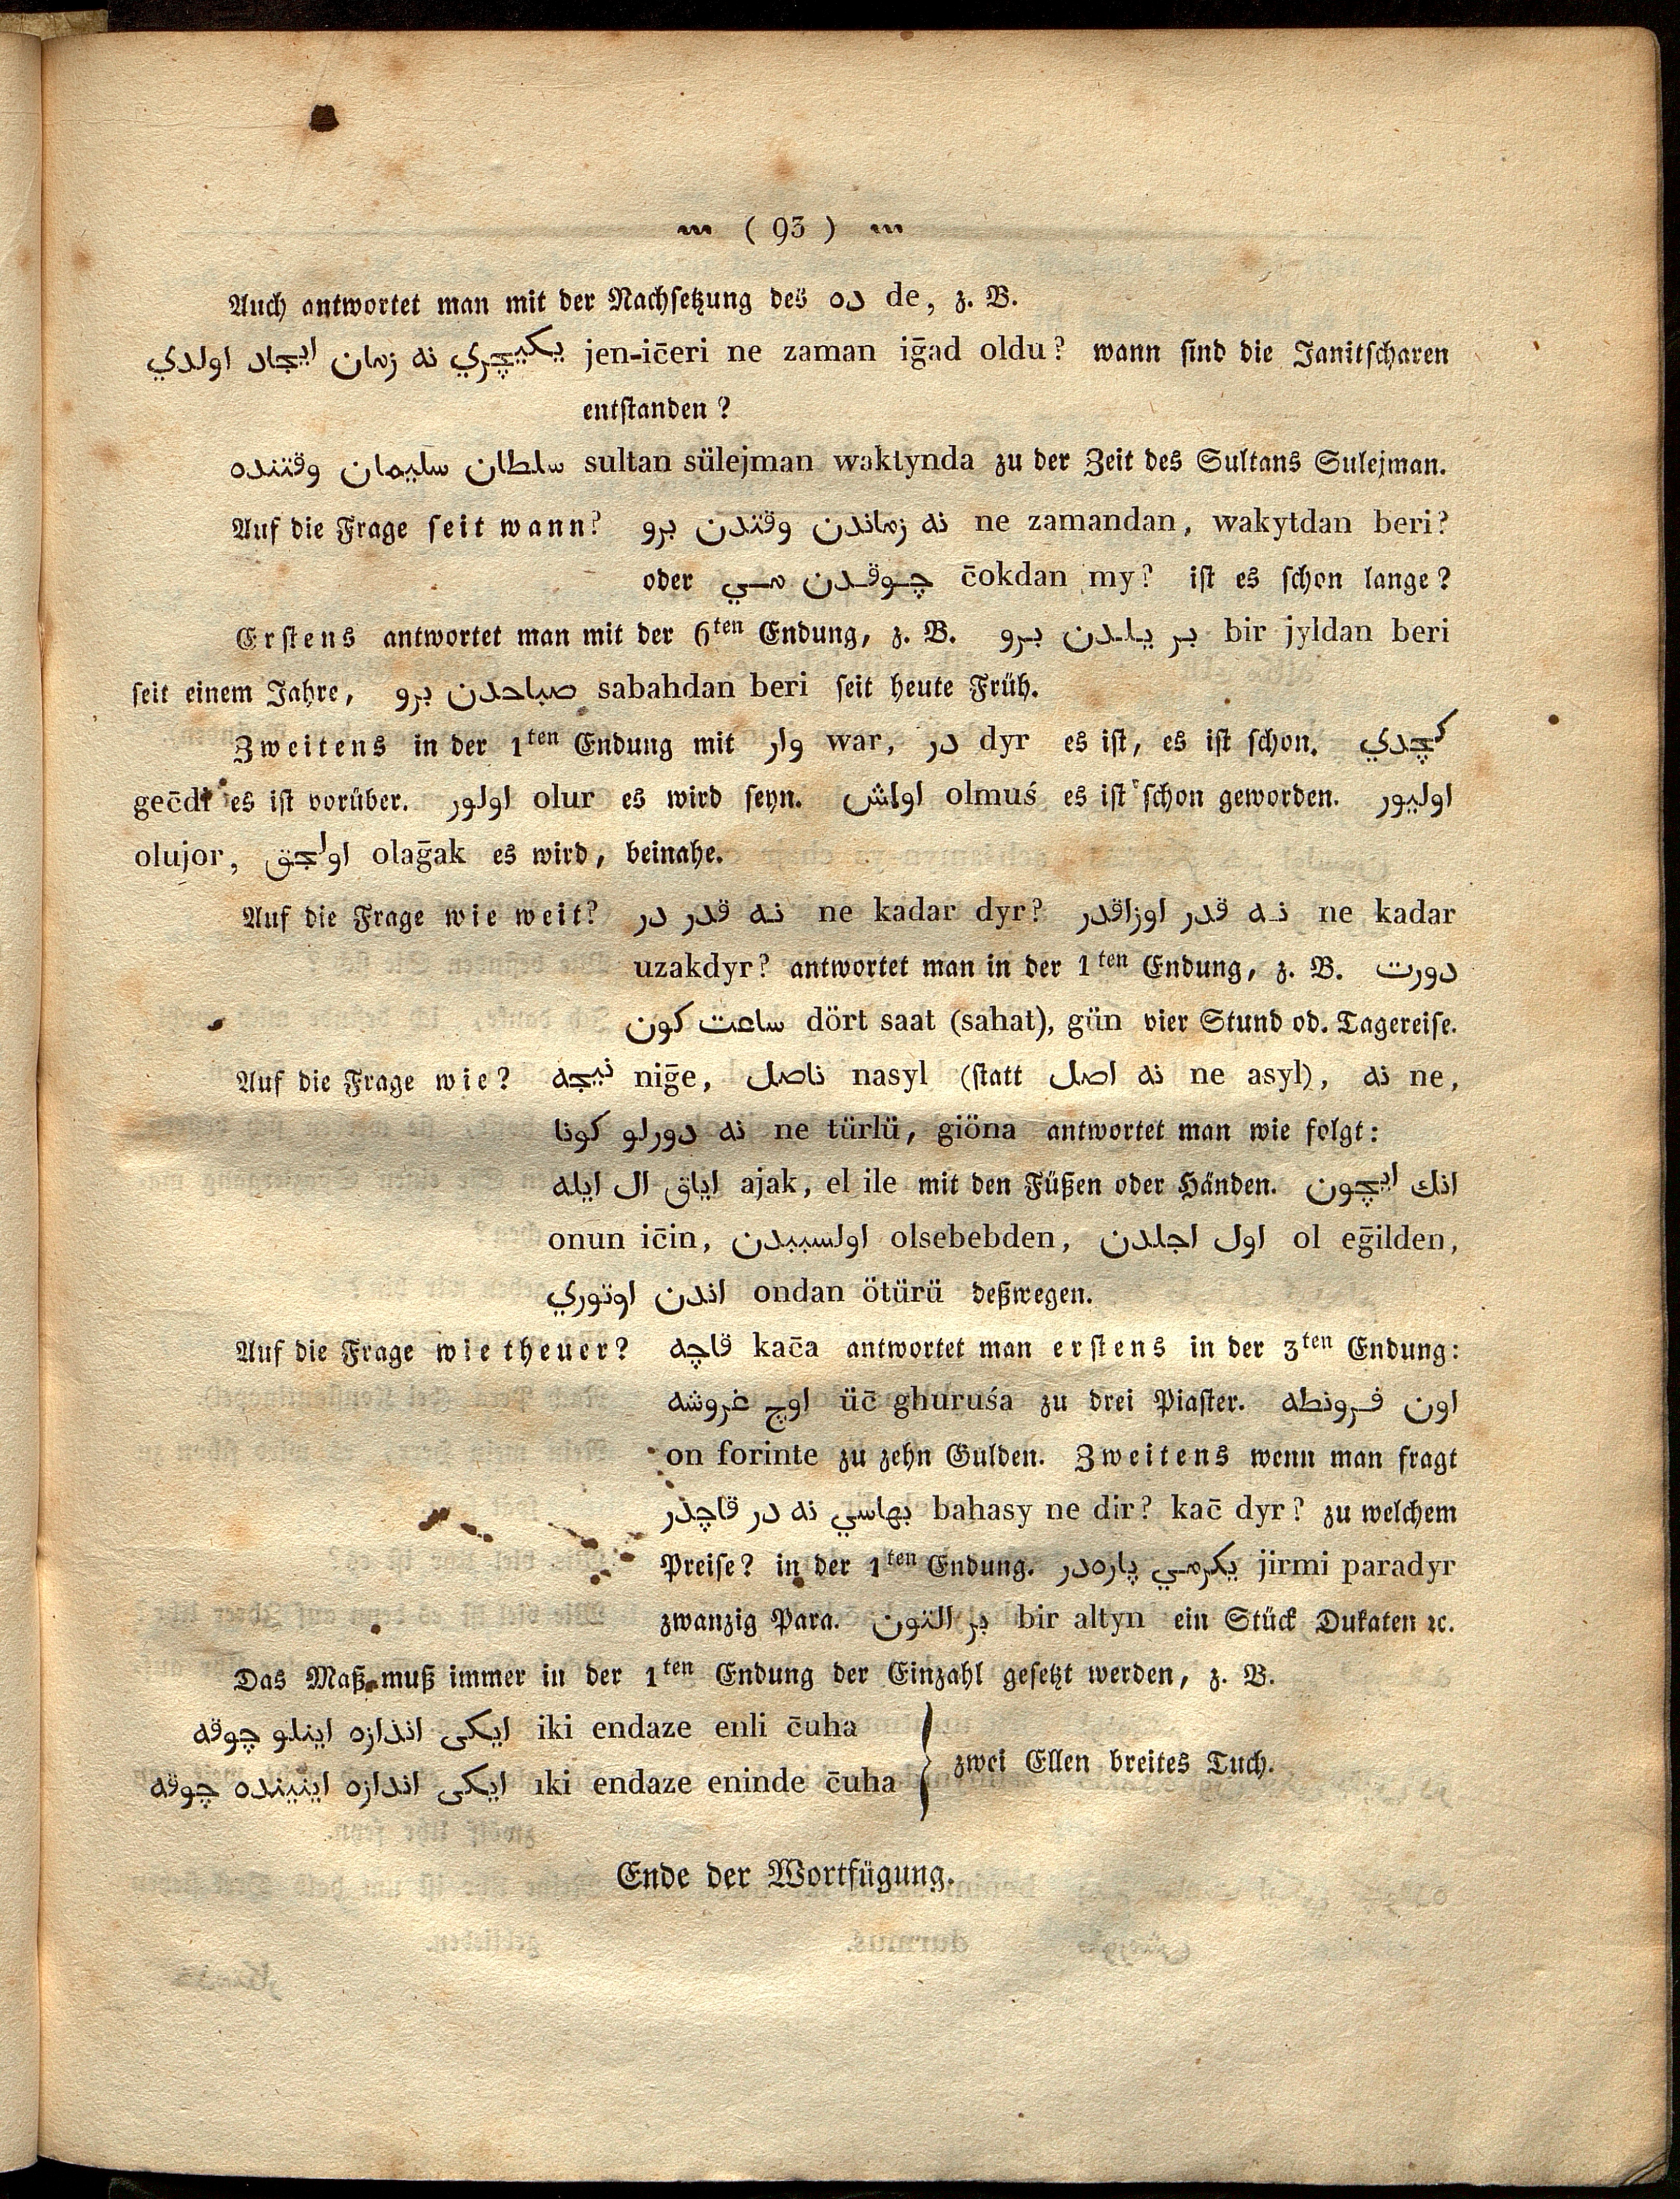 ( 93 )
Auch antwortet man mit der Nachsetzung des ده de, z. B.
يكيچري نه زمان ايجاد اولدي jen-ic̄eri ne zaman iḡad oldu? wann sind die Janitscharen
entstanden?
سلطان سليمان وقتنده sultan sülejman waktynda zu der Zeit des Sultans Sulejman.
Auf die Frage seit wann? نه زماندن وقتدن برو ne zamandan, wakytdan beri?
oder چوقدن مي c̄okdan my? ist es schon lange?
Erstens antwortet man mit der 6ten Endung, z. B. بر يلدن برو bir jyldan beri
seit einem Jahre, صباحدن برو sabahdan beri seit heute Früh.
Zweitens in der 1ten Endung mit وار war, در dyr es ist, es ist schon. كچدي
gec̄di es ist vorüber. اولور olur es wird seyn. اولمش olmuś es ist schon geworden. اوليور
olujor, اولجق olaḡak es wird, beinahe.
Auf die Frage wie weit? نه قدر در ne kadar dyr? نه قدر اوزاقدر ne kadar
uzakdyr? antwortet man in der 1ten Endung, z. B. دورت
ساعت كون dört saat (sahat), gün vier Stund od. Tagereise.
Auf die Frage wie? نيجه niḡe, ناصل nasyl (statt نه اصل ne asyl), نه ne,
نه دورلو كونا ne türlü, giöna antwortet man wie folgt:
اياق ال ايله ajak, el ile mit den Füßen oder Händen. انك ايچون
onun ic̄in, اولسببدن olsebebden, اول اجلدن ol eḡilden,
اندن اوتوري ondan ötürü deßwegen.
Auf die Frage wie theuer? قاچه kac̄a antwortet man erstens in der 3ten Endung:
اوچ غروشه üc̄ ghuruśa zu drei Piaster. اون فرونطه
on forinte zu zehn Gulden. Zweitens wenn man fragt
بهاسي نه در قاچدر bahasy ne dir? kac̄ dyr? zu welchem
Preise? in der 1ten Endung. يكرمي پاره‌در jirmi paradyr
zwanzig Para. بر التون bir altyn ein Stück Dukaten ꝛc.
Das Maß muß immer in der 1ten Endung der Einzahl gesetzt werden, z. B.
ايكى اندازه اينلو چوقه iki endaze enli c̄uha
zwei Ellen breites Tuch.
ايكى اندازه اينينده چوقه iki endaze eninde c̄uha
Ende der Wortfügung.